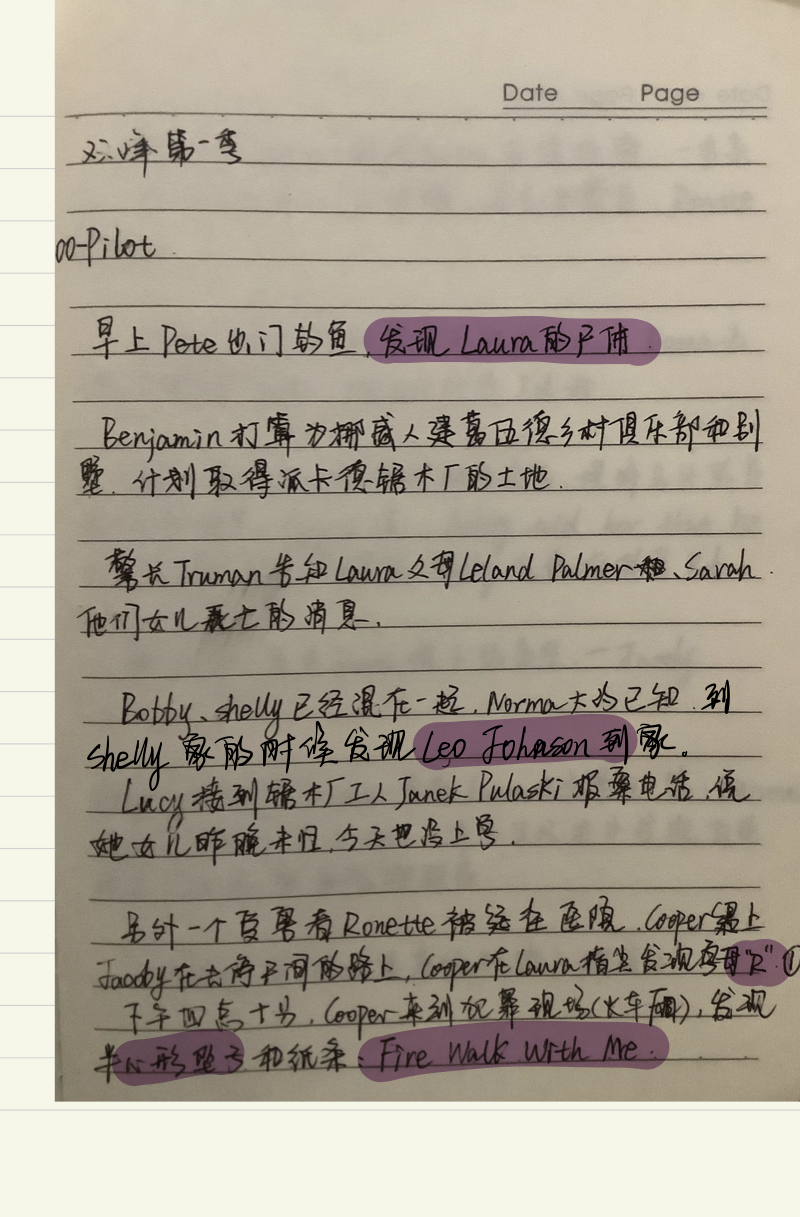 Date Page
双峰第一季
00-Pilot
早上Pete出门钓鱼,发现Laura的尸体.
Benjamin打算为挪威人建葛伍德乡村俱乐部和别
墅.计划取得派卡德锯木厂的土地.
警长Truman告知Laura父母Leland Palmer、Sarah.
他们女儿死亡的消息.
Bobby、shelly已经混在一起.Norma大约已知.到
shelly家的时候发现Leo Johnson到家。
Lucy接到锯木厂工人Janek Pulaski报案电话,说
她女儿昨晚未归.今天也没上学.
另外一个受害者Ronette被送往医院.Cooper遇上
Jacoby在去停尸间的路上,Cooper在Laura指尖发现字母"R".①
下午四点十分,Cooper来到犯罪现场(火车厢),发现
半心形坠子和纸条:Fire Walk With Me.